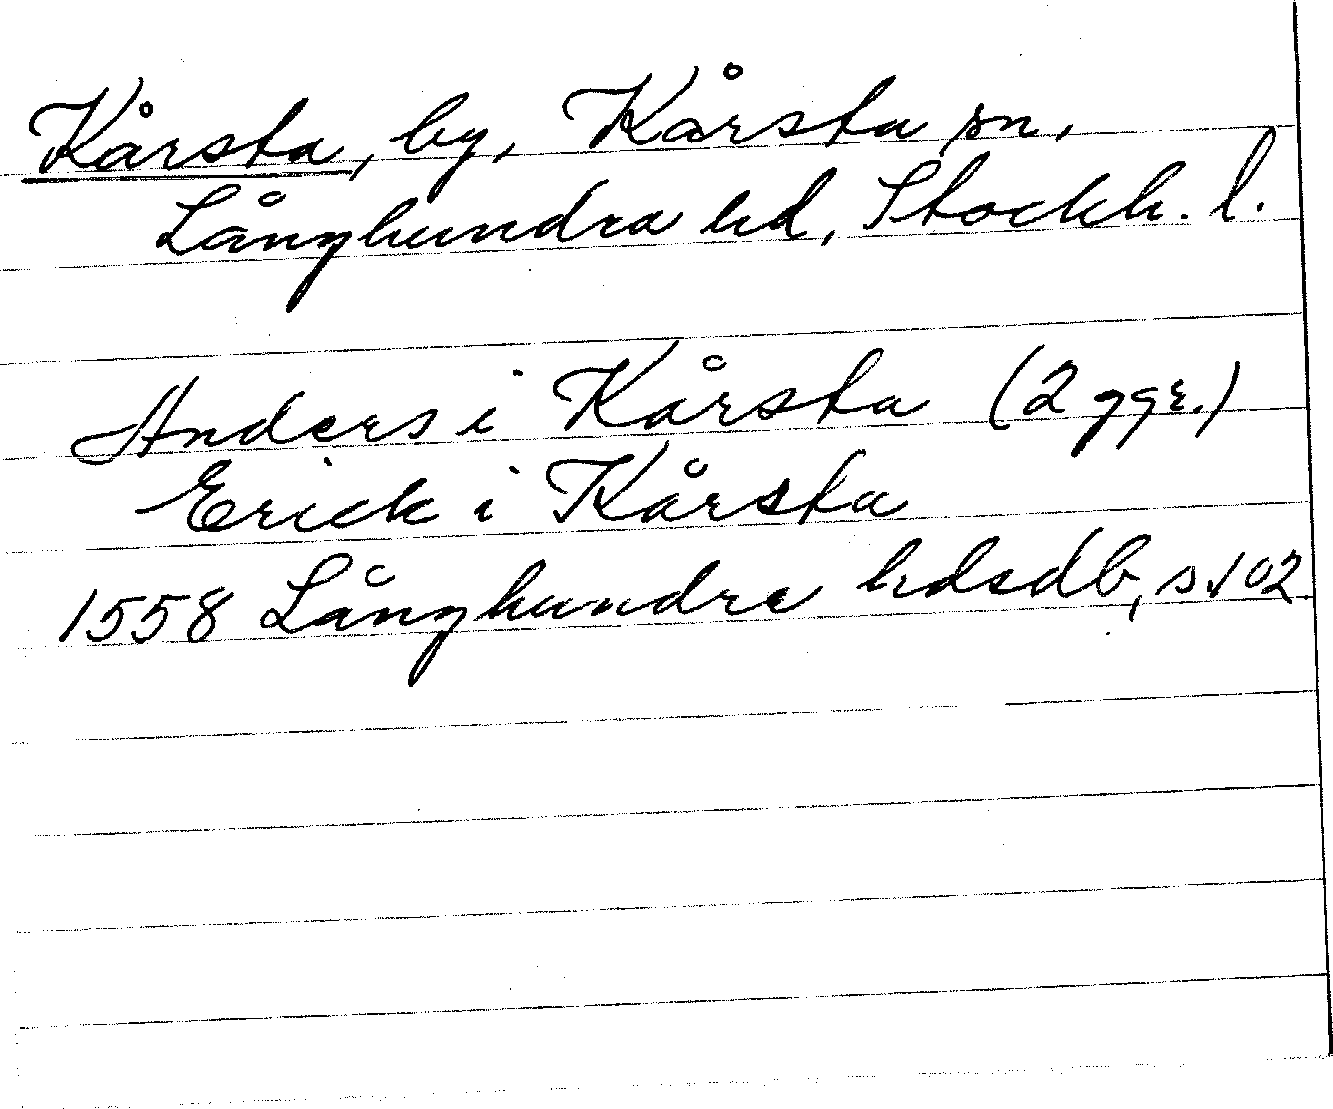 Kårsta, by, Kårsta sn,
Långhundra hd, Stockh. l.
Anders i Kårsta (2 ggr.)
Erick i Kårsta
1558 Långhundra hdsdb, s 102